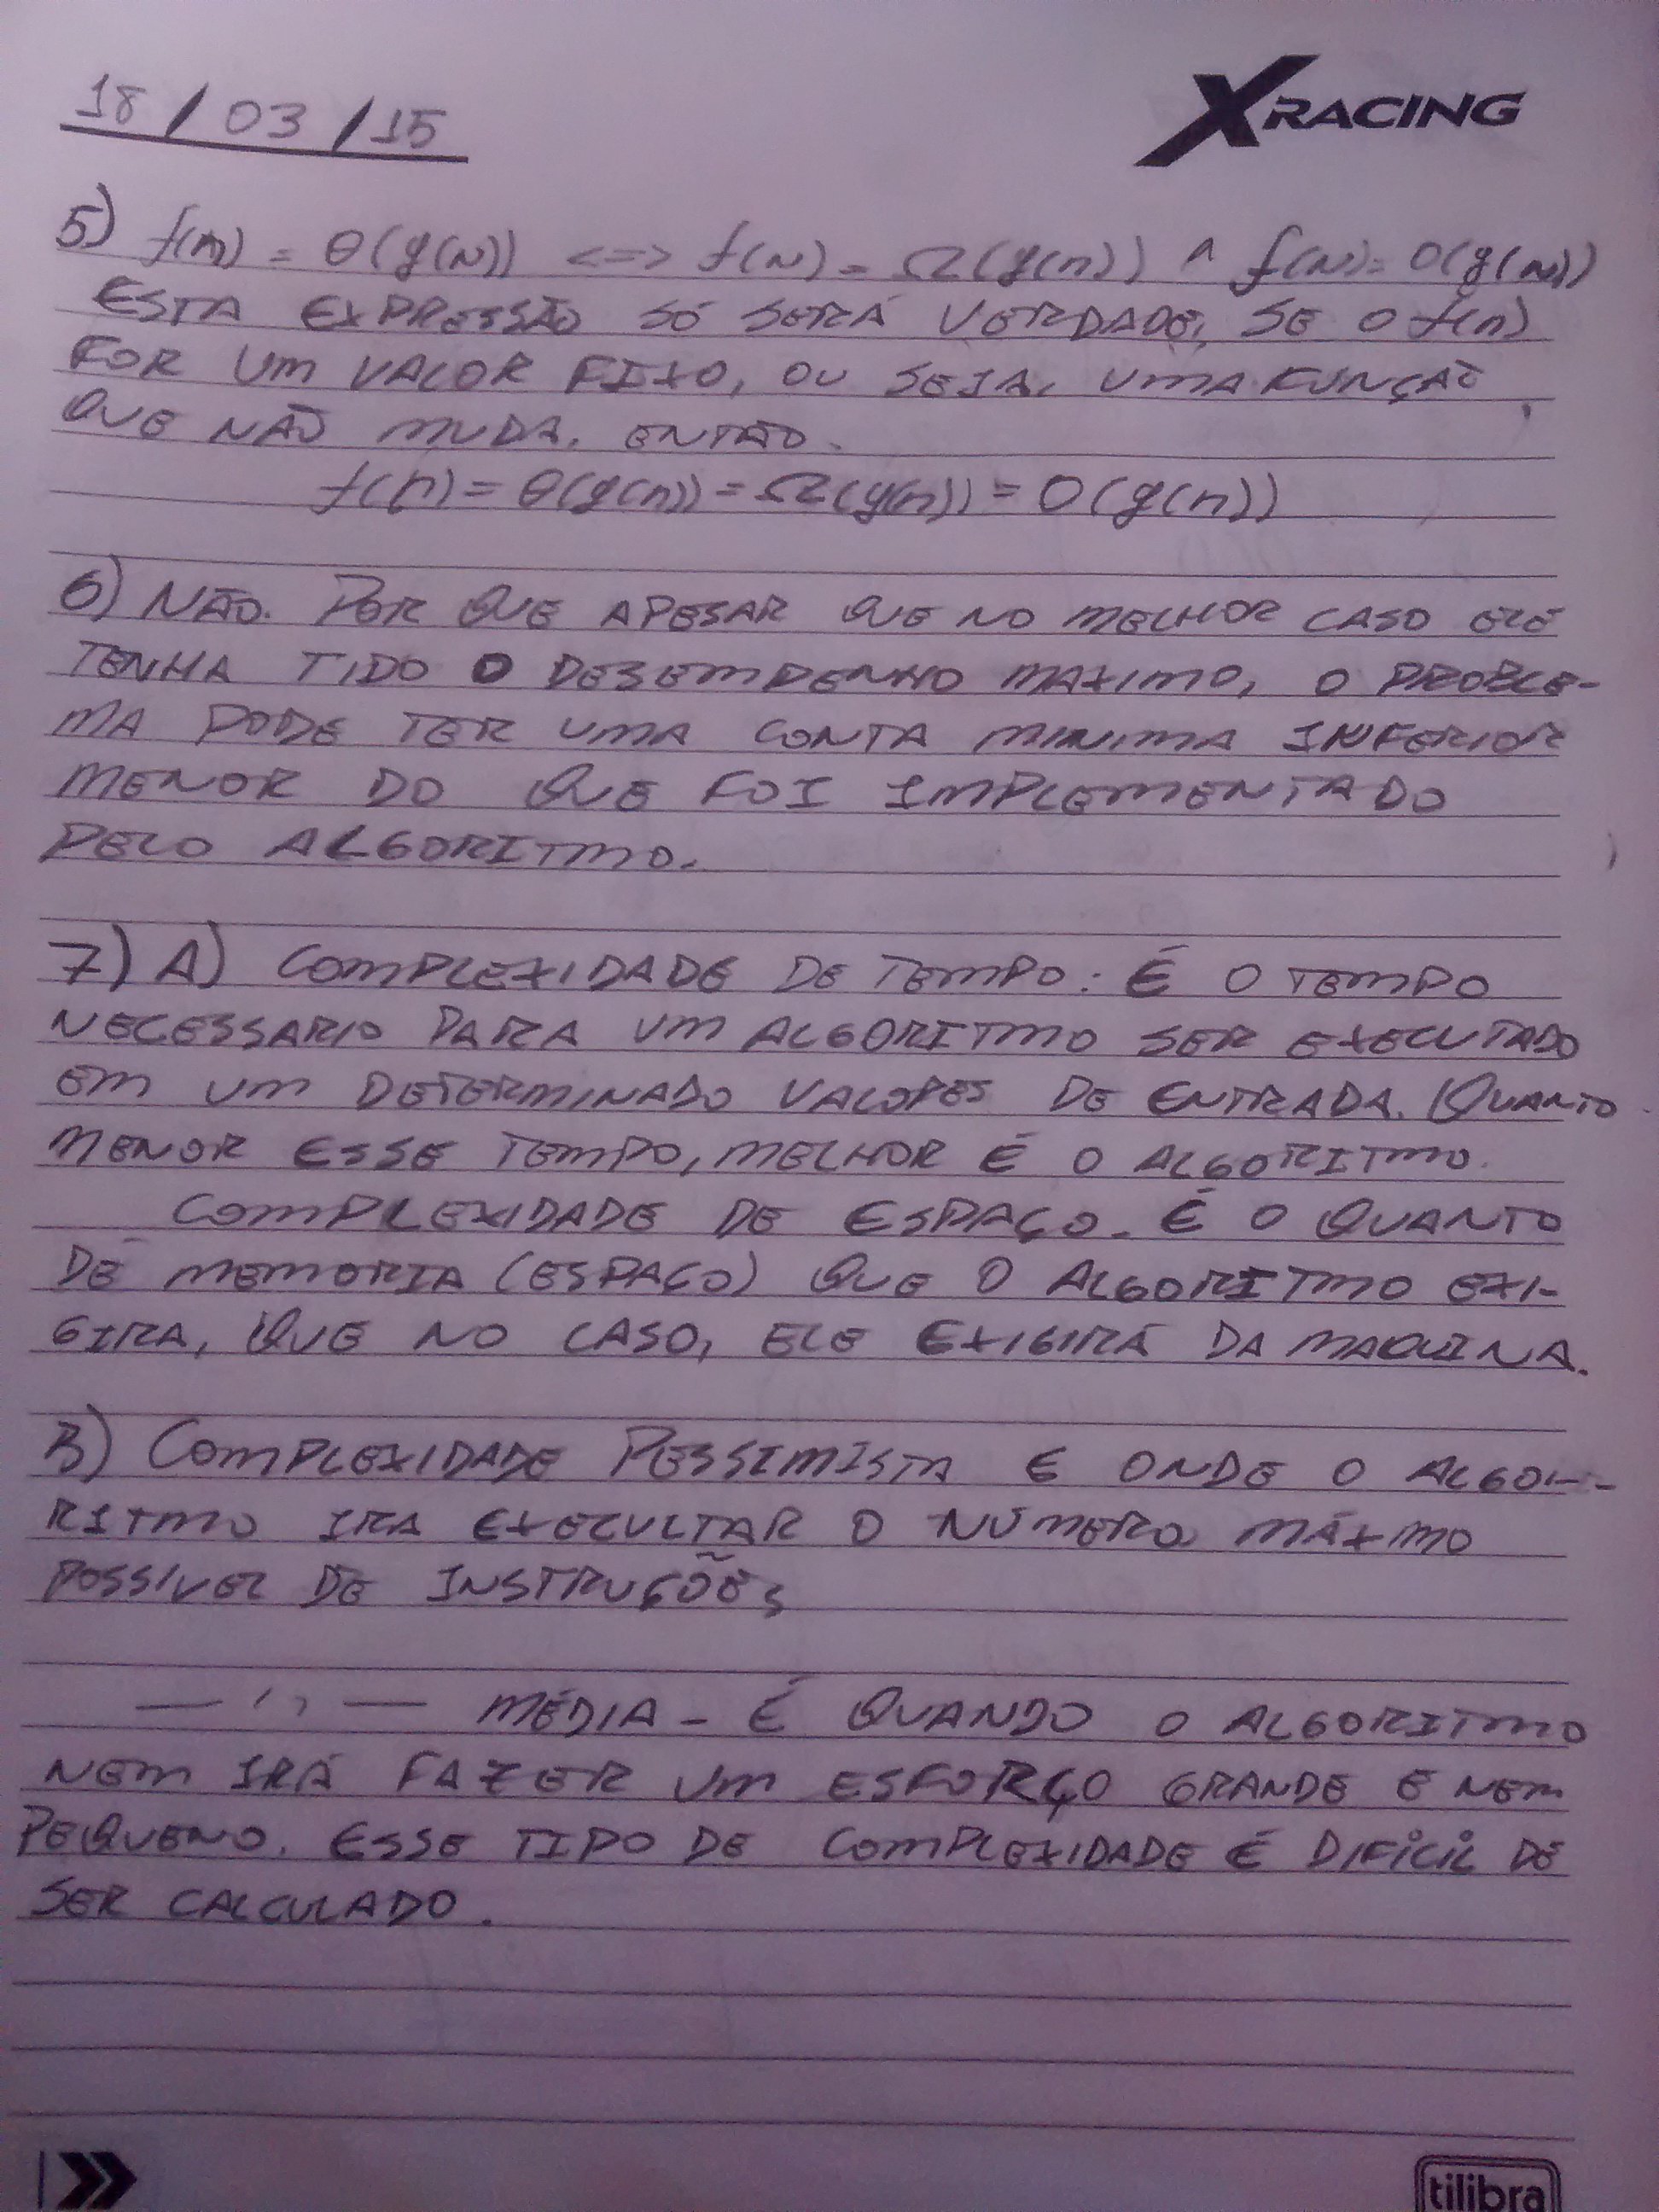 18/03/15
XRACING
5) f(n) = θ(g(N)) <=> f(N) = Ω(g(n)) ^ f(N) = O(g(N))
ESTA EXPRESSÃO SÓ SERÁ VERDADE, SE O f(n)
FOR UM VALOR FIXO, OU SEJA, UMA FUNÇÃO
QUE NÃO MUDA. ENTÃO.
f(n) = θ(g(n)) = Ω(g(n)) = O(g(n))
6) NÃO. POR QUE APESAR QUE NO MELHOR CASO ELE
TENHA TIDO O DESEMPENHO MAXIMO, O PROBLE-
MA PODE TER UMA CONTA MINIMA INFERIOR
MENOR DO QUE FOI IMPLEMENTADO
PELO ALGORITMO.
7) A) COMPLEXIDADE DE TEMPO: É O TEMPO
NECESSARIO PARA UM ALGORITMO SER EXECUTADO
EM UM DETERMINADO VALORES DE ENTRADA. QUANTO
MENOR ESSE TEMPO, MELHOR É O ALGORITMO.
COMPLEXIDADE DE ESPAÇO - É O QUANTO
DE MEMORIA (ESPAÇO) QUE O ALGORITMO EXI-
GIRA, QUE NO CASO, ELE EXIGIRÁ DA MAQUINA.
B) COMPLEXIDADE PESSIMISTA E ONDE O ALGO-
RITMO IRA EXECULTAR O NÚMERO MÁXIMO
POSSIVEL DE INSTRUÇÕES
— ' , — MÉDIA - É QUANDO O ALGORITMO
NEM IRÁ FAZER UM ESFORÇO GRANDE E NEM
PEQUENO. ESSE TIPO DE COMPLEXIDADE É DIFICIL DE
SER CALCULADO.
tilibra